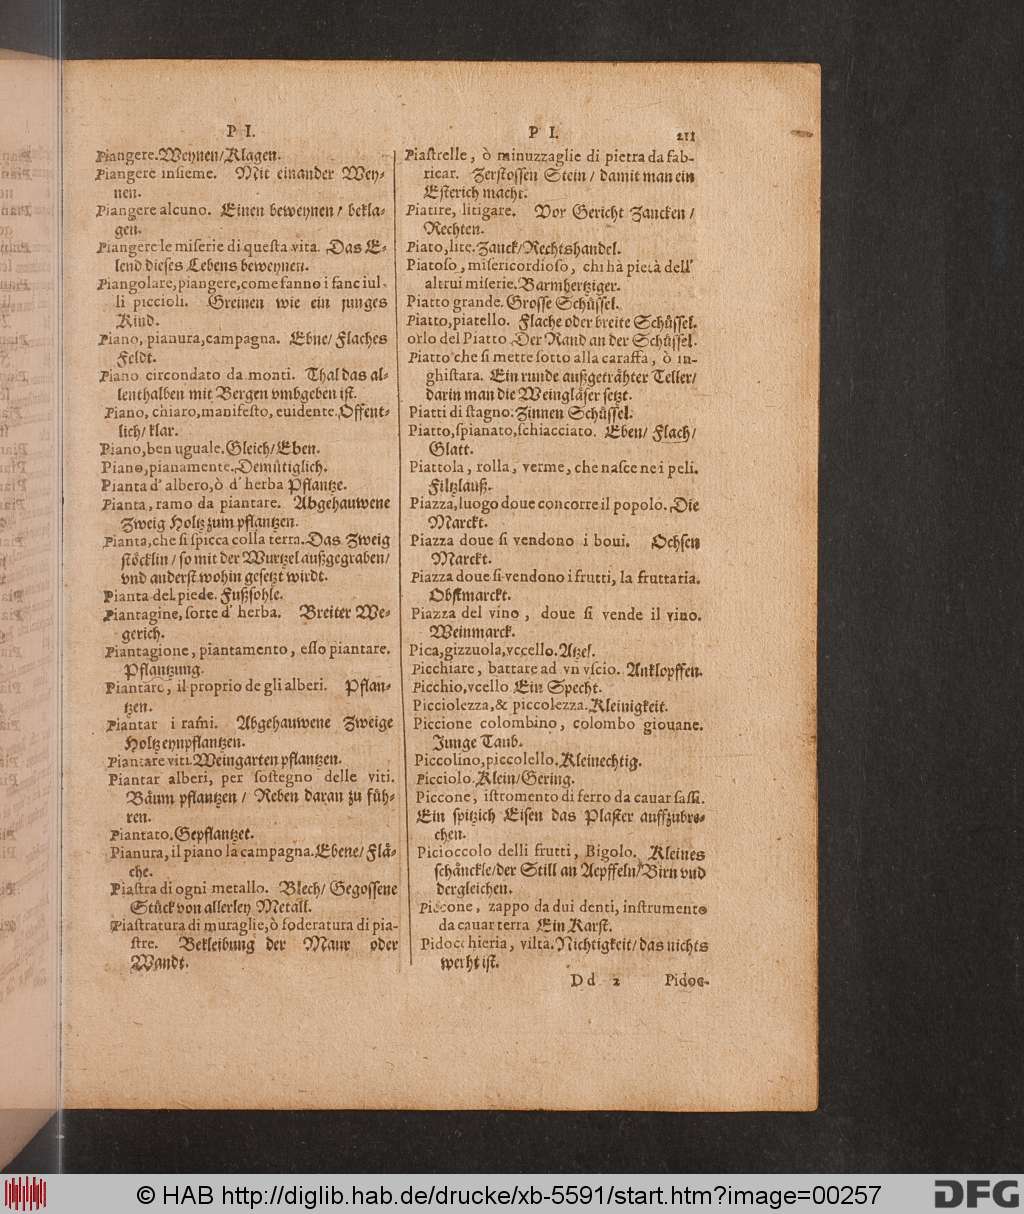 P I.
Piangere. Weynen/ Klagen.
Piangere insieme. Mit einander Wey-
nen.
Piangere alcuno. Einen beweynen/ bekla-
gen.
Piangere le miserie di questa vita. Das E-
lend dieses Lebens beweynen.
Piangolare, piangere, come fanno i fanciul-
li piccioli. Greinen wie ein junges
Kind.
Piano, pianura, campagna. Ebne/ Flaches
Feldt.
Piano circondato da monti. Thal das al-
lenthalben mit Bergen vmbgeben ist.
Piano, chiaro, manifesto, euidente. Offent-
lich/ klar.
Piano, ben uguale. Gleich/ Eben.
Piano, pianamente. Demütiglich.
Pianta d' albero, ò d' herba Pflantze.
Pianta, ramo da piantare. Abgehauwene
Zweig Holtz zum pflantzen.
Pianta, che si spicca colla terra. Das Zweig
stöcklin/ so mit der Wurtzel außgegraben/
vnd anderst wohin gesetzt wirdt.
Pianta del piede. Fußsohle.
Piantagine, sorte d' herba. Breiter We-
gerich.
Piantagione, piantamento, esso piantare.
Pflantzung.
Piantare, il proprio de gli alberi. Pflan-
tzen.
Piantar i rami. Abgehauwene Zweige
Holtz eynpflantzen.
Piantare viti. Weingarten pflantzen.
Piantar alberi, per sostegno delle viti.
Bäum pflantzen/ Reben daran zu füh-
ren.
Piantato. Gepflantzet.
Pianura, il piano la campagna. Ebene/ Flä-
che.
Piastra di ogni metallo. Blech/ Gegossene
Stück von allerley Metall.
Piastratura di muraglie, ò foderatura di pia-
stre. Bekleibung der Maur oder
Wandt.
P I. 211
Piastrelle, ò minuzzaglie di pietra da fab-
ricar. Zerstossen Stein/ damit man ein
Esterich macht.
Piatire, litigare. Vor Gericht Zancken/
Rechten.
Piato, lite. Zanck/ Rechtshandel.
Piatoso, misericordioso, chi hà pietà dell'
altrui miserie. Barmhertziger.
Piatto grande. Grosse Schüssel.
Piatto, piatello. Flache oder breite Schüssel.
orlo del Piatto. Der Rand an der Schüssel.
Piatto che si mette sotto alla caraffa, ò in-
ghistara. Ein runde außgeträhter Teller/
darin man die Weingläser setzt.
Piatti di stagno. Zinnen Schüssel.
Piatto, spianato, schiacciato. Eben/ Flach/
Glatt.
Piattola, rolla, verme, che nasce nei peli.
Filtzlauß.
Piazza, luogo doue concorre il popolo. Die
Marckt.
Piazza doue si vendono i boui. Ochsen
Marckt.
Piazza doue si vendono i frutti, la fruttaria.
Obstmarckt.
Piazza del vino, doue si vende il vino.
Weinmarck.
Pica, gizzuola, vccello. Atzel.
Picchiare, battare ad vn vscio. Anklopffen.
Picchio, vcello Ein Specht.
Picciolezza, & piccolezza. Kleinigkeit.
Piccione colombino, colombo giouane.
Junge Taub.
Piccolino, piccolello. Kleinechtig.
Picciolo. Klein/ Gering.
Piccone, istromento di ferro da cauar sassi.
Ein spitzich Eisen das Plaster auffzubre-
chen.
Picioccolo delli frutti, Bigolo. Kleines
schänckle/ der Still an Aepffeln/ Birn vnd
dergleichen.
Piccone, zappo da dui denti, instrumento
da cauar terra Ein Karst.
Pidocchieria, viltà. Nichtigkeit/ das nichts
werht ist.
D d 2 Pidoc-
© HAB http://diglib.hab.de/drucke/xb-5591/start.htm?image=00257
DFG